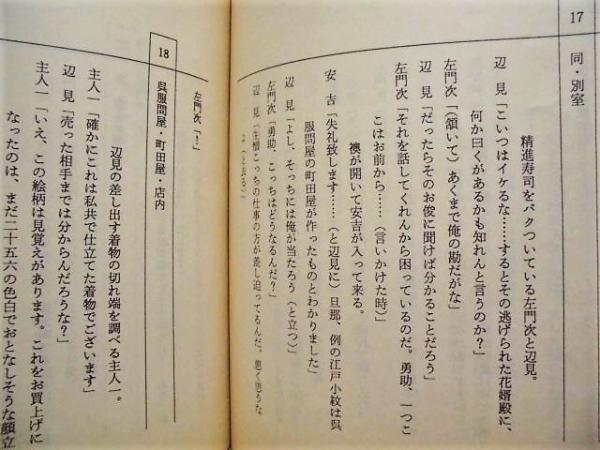 17
同・別室
精進寿司をパクついている左門次と辺見。
辺見「こいつはイケるな……するとその逃げられた花婿殿に、
何か曰くがあるかも知れんと言うのか？」
左門次「（頷いて）あくまで俺の勘だがな」
辺見「だったらそのお俊に聞けば分かることだろう」
左門次「それを話してくれんから困っているのだ。勇助、一つこ
こはお前から……（言いかけた時）」
襖が開いて安吉が入って来る。
安吉「失礼致します……（と辺見に）旦那、例の江戸小紋は呉
服問屋の町田屋が作ったものとわかりました」
辺見「よし、そっちには俺が当たろう（と立つ）」
左門次「勇助、こっちはどうなるんだ？」
辺見「生憎こっちの仕事の方が差し迫ってるんだ。悪く思うな
よ（と去る）」
左門次「！」
18
呉服問屋・町田屋・店内
辺見の差し出す着物の切れ端を調べる主人一。
主人一「確かにこれは私共で仕立てた着物でございます」
辺見「売った相手までは分からんだろうな？」
主人一「いえ、この絵柄は見覚えがあります。これをお買上げに
なったのは、まだ二十五六の色白でおとなしそうな顔立